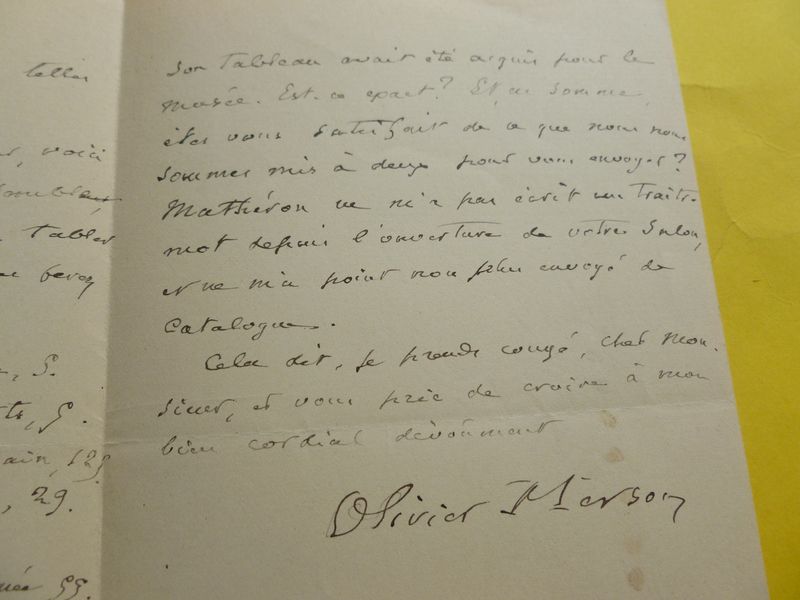 telles
voici
tables
5.
5.
125
29.
55.
son tableau avait été acquis pour le
musée. Est-ce exact? Et, en somme,
êtes vous satisfait de ce que nous nous
sommes mis à deux pour vous envoyer?
Mathéron ne m'a pas écrit un traitre
mot depuis l'ouverture de votre Salon,
et ne m'a point non plus envoyé de
Catalogue.
Cela dit, je prends congé, cher Mon-
sieur, et vous prie de croire à mon
bien cordial dévoûment
Olivier Merson